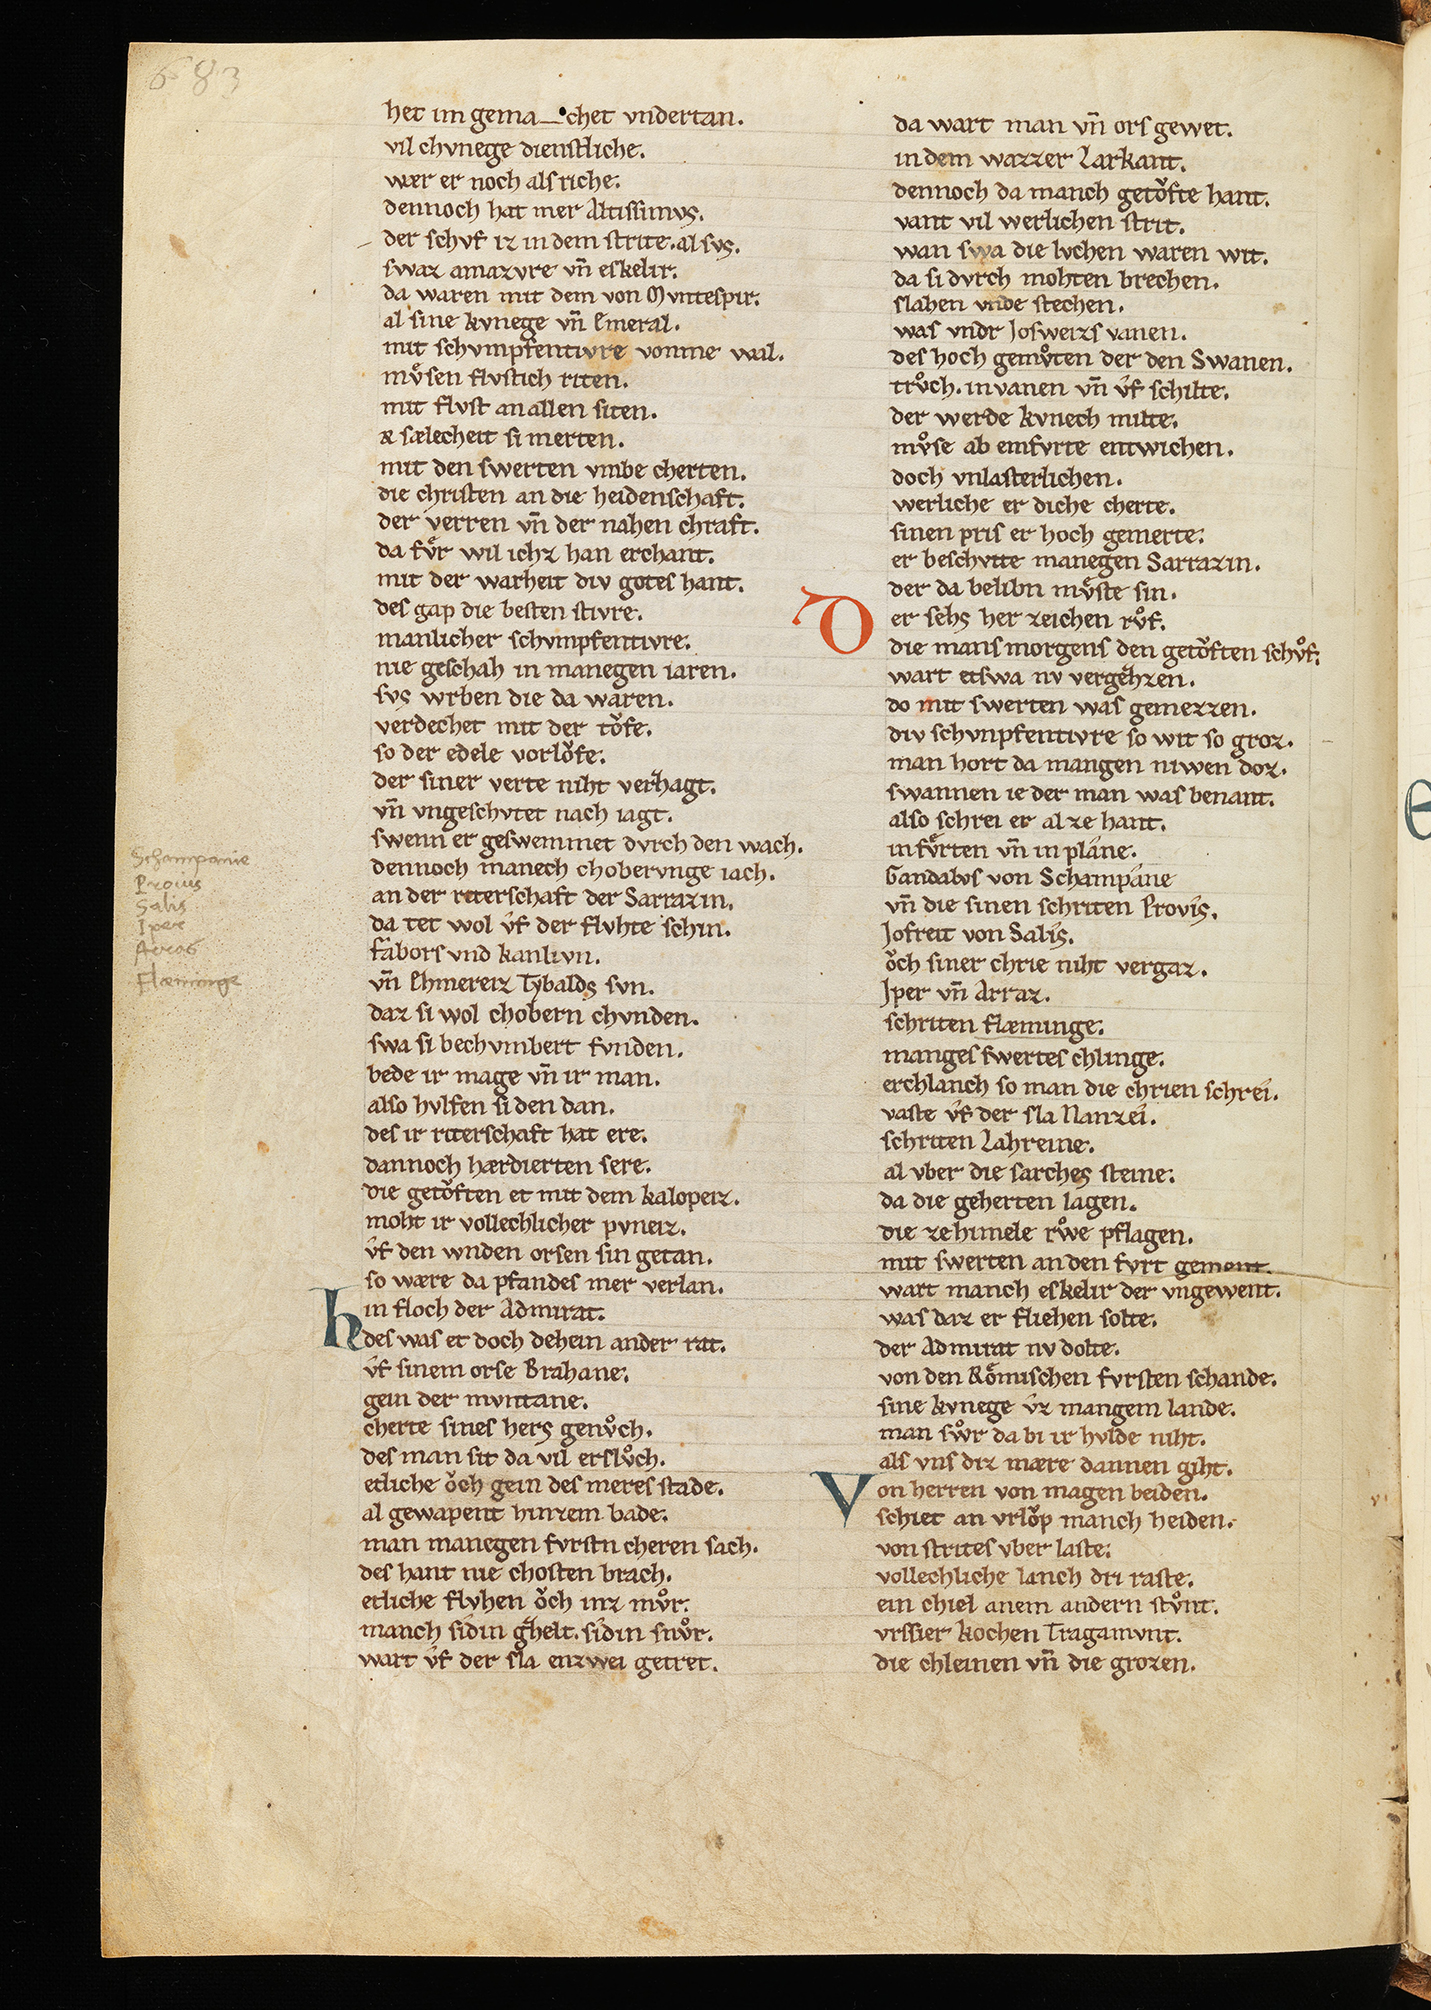 683
het im gema—chet vndertan.
vil chvnege dienstliche.
wær er noch als riche.
dennoch hat mer Altissimvs.
der schvf iz in dem strite. al svs.
swaz amazvre vn̄ eskelir.
da waren mit dem von Mvntespir.
al sine kvnege vn̄ Emeral.
mit schvmpfentivre vonme wal.
mvͦsen flvstich riten.
mit flvst an allen siten.
æ sælecheit si merten.
mit den swerten vmbe cherten.
die christen an die heidenschaft.
der verren vn̄ der nahen chraft.
da fvͤr wil ichz han erchant.
mit der warheit div gotes hant.
des gap die besten stivre.
manlicher schvmpfentivre.
nie geschah in manegen iaren.
svs wrben die da waren.
verdechet mit der toͮfe.
so der edele vorloͮfe.
der siner verte niht verhagt.
vn̄ vngeschvtet nach iagt.
swenn er geswemmet dvrch den wach.
dennoch manech chobervnge iach.
an der riterschaft der Sarrazin.
da tet wol v̂f der flvhte schin.
fabors vnd kanlivn.
vn̄ Ehmereiz Tybalds svn.
daz si wol chobern chvnden.
swa si bechvmbert fvnden.
bede ir mage vn̄ ir man.
also hvlfen si den dan.
des ir riterschaft hat ere.
dannoch hærdierten sere.
die getoͮften et mit dem kalopeiz.
moht ir vollechlicher pvneiz.
v̂f den wnden orsen sin getan.
so wære da pfandes mer verlan.
hin floch der Admirat.
des was et doch dehein ander rat.
v̂f sinem orse Brahane.
gein der mvntane.
cherte sines hers genvͦch.
des man sit da vil erslvͦch.
etliche oͮch gein des meres stade.
al gewapent hinzem bade.
man manegen fvrstn cheren sach.
des hant nie chosten brach.
etliche flvhen oͮch inz mvͦr.
manch sidin ghelt. sidin snvͦr.
wart v̂f der sla enzwei getret.
Schampanie
Proius
Salis
Iper
Arras
Flæminge
da wart man vn̄ ors gewet.
in dem wazzer Larkant.
dennoch da manch getoͮfte hant.
vant vil werlichen strit.
wan swa die lvchen waren wit.
da si dvrch mohten brechen.
slahen vnde stechen.
was vndr Josweizs vanen.
des hoch gemvͦten der den Swanen.
trvͦch. in vanen vn̄ v̂f schilte.
der werde kvnech milte.
mvͦse ab emfvrte entwichen.
doch vnlasterlichen.
werliche er diche cherte.
sinen pris er hoch gemerte.
er beschvtte manegen Sarrazin.
der da belibn mvͤste sin.
Der sehs her zeichen rvͦf.
die mans morgens den getoͮften schvͦf.
wart etswa nv vergezzen.
do mit swerten was gemezzen.
div schvnpfentivre so wit so groz.
man hort da mangen niwen doz.
swannen ie der man was benant.
also schrei er al ze hant.
in fvͤrten vn̄ in pláne.
Gandalvs von Schampáne
vn̄ die sinen schriten Provis.
Jofreit von Salis.
oͮch siner chrie niht vergaz.
Jper vn̄ Arraz.
schriten flæminge.
manges swertes chlinge.
erchlanch so man die chrien schrei.
vaste v̂f der sla Nanzei.
schriten Lahreine.
al vber die sarches steine.
da die geherten lagen.
die ze himele rvͦwe pflagen.
mit swerten an den fvrt gement.
wart manch eskelir der vngewent.
was daz er fliehen solte.
der Admirat nv dolte.
von den Roͤmischen fvrsten schande.
sine kvnege v̂z mangem lande.
man swͦr da bi ir hvlde niht.
als vns diz mære dannen giht.
Von herren von magen beiden.
schiet an vrloͮp manch heiden.
von strites vber laste.
vollechliche lanch dri raste.
ein chiel anem andern stvͦnt.
vrssier kochen Tragamvnt.
die chleinen vn̄ die grozen.